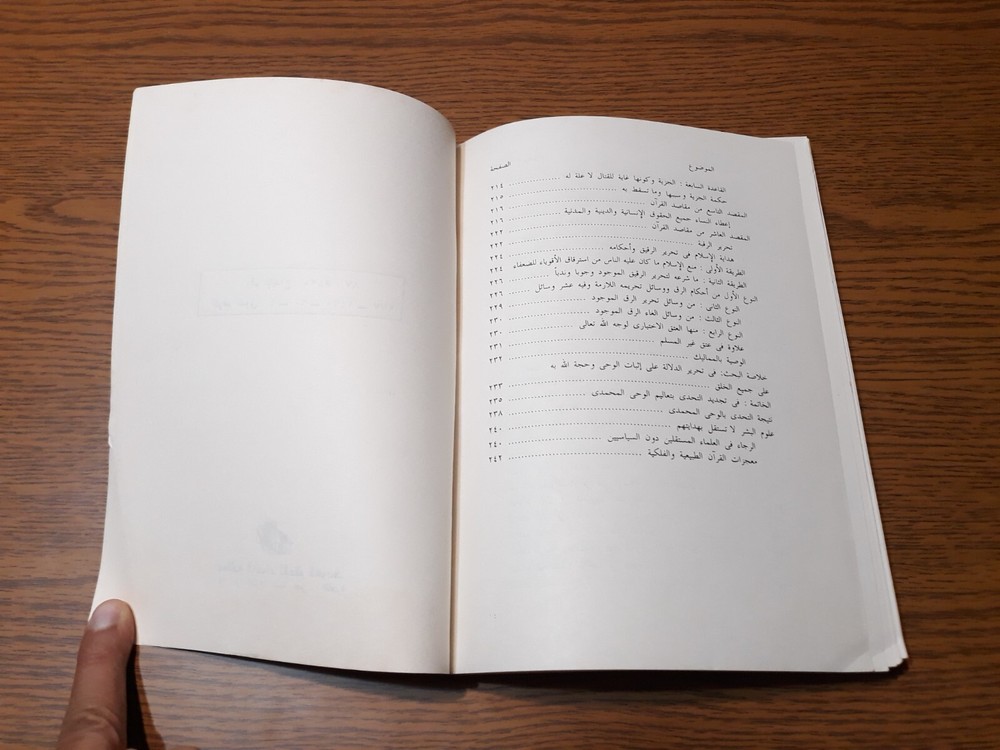 الموضوع الصفحة
القاعدة السابعة : الجزية وكونها غاية للقتال لا علة له ............ ٢١٤
حكمة الجزية وسببها وما تسقط به ............ ٢١٥
المقصد التاسع من مقاصد القرآن ............ ٢١٦
إعطاء النساء جميع الحقوق الإنسانية والدينية والمدنية ............ ٢١٦
المقصد العاشر من مقاصد القرآن ............ ٢٢٢
تحرير الرقبة ............ ٢٢٢
هداية الإسلام فى تحرير الرقيق وأحكامه ............ ٢٢٤
الطريقة الأولى : منع الإسلام ما كان عليه الناس من استرقاق الأقوياء للضعفاء ٢٢٤
الطريقة الثانية : ما شرعه لتحرير الرقيق الموجود وجوبا وندباً ............ ٢٢٦
النوع الأول من أحكام الرق ووسائل تحريمه اللازمة وفيه عشر وسائل ............ ٢٢٦
النوع الثانى : من وسائل لتحرير الرق الموجود ............ ٢٢٩
النوع الثالث : من وسائل الغاء الرق الموجود ............ ٢٣٠
النوع الرابع : منها العتق الاختيارى لوجه الله تعالى ............ ٢٣٠
علاوة فى عتق غير المسلم ............ ٢٣١
الوصية بالمماليك ............ ٢٣٢
خلاصة البحث: فى تحرير الدلالة على إثبات الوحى وحجة الله به
على جميع الخلق ............ ٢٣٣
الخاتمة : فى تجديد التحدى بتعاليم الوحى المحمدى ............ ٢٣٥
نتيجة التحدى بالوحى المحمدى ............ ٢٣٨
علوم البشر لا تستقل بهدايتهم ............ ٢٤٠
الرجاء فى العلماء المستقلين دون السياسيين ............ ٢٤٠
معجزات القرآن الطبيعية والفلكية ............ ٢٤٢